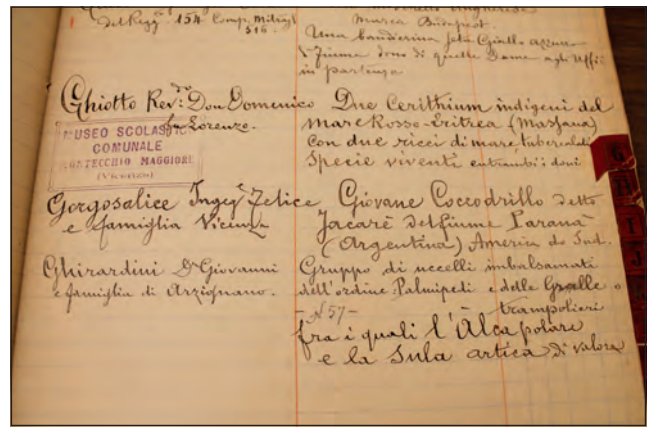 del Regg. 154. Comp. Mitragl
516.
marca Budapest.
Una bandierina seta Giallo azzurro
Fiume dono di quelle Dame agli Uffi:
in partenza
Ghiotto Rev:do Don Domenico
fu Lorenzo.
Due Cerithium indigeni del
mare Rosso-Eritrea (Massaua)
con due ricci di mare tubercolati
Specie viventi entrambi i doni
MUSEO SCOLASTICO
COMUNALE
MONTECCHIO MAGGIORE
(Vicenza)
Gorgosalice Ingeg Felice
e famiglia Vicenza
Giovane Coccodrillo detto
Jacarè del fiume Paranà
(Argentina) America do Sud.
Ghirardini Dr Giovanni
e famiglia di Arzignano.
Gruppo di uccelli imbalsamati
dell'ordine Palmipedi e delle Gralle o
trampolieri
- N 57 -
fra i quali l'Alca polare
e la Sula artica di valore
G
H
I
J